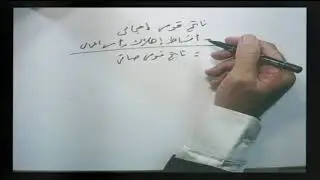 ناتج قومى اجمالى
- أقساط إهلاك رأس المال
= ناتج قومى صافى